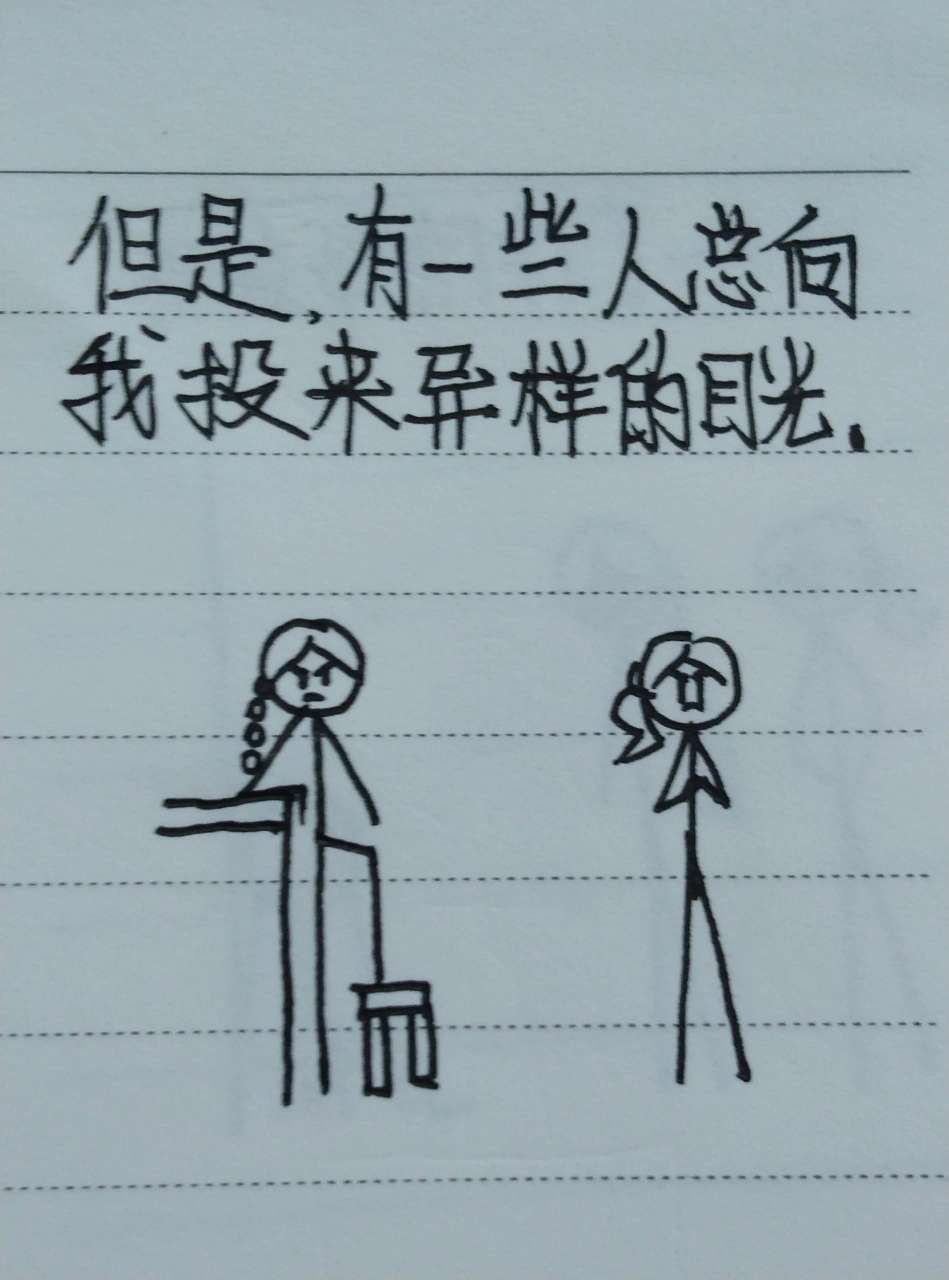 但是,有一些人总向
我投来异样的目光.